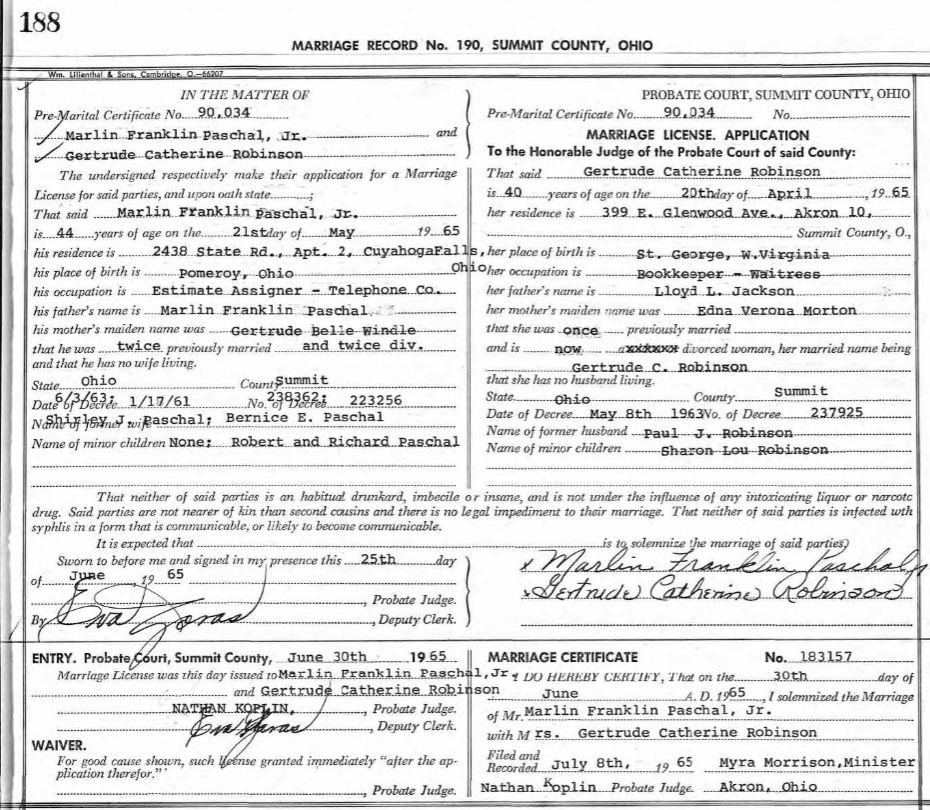 188
MARRIAGE RECORD No. 190, SUMMIT COUNTY, OHIO
Wm. Lilienthal & Sons, Cambridge, O.—66207
IN THE MATTER OF
Pre-Marital Certificate No. 90,034
Marlin Franklin Paschal, Jr. and
Gertrude Catherine Robinson
The undersigned respectively make their application for a Marriage
License for said parties, and upon oath state ;
That said Marlin Franklin Paschal, Jr.
is 44 years of age on the 21st day of May 1965
his residence is 2438 State Rd., Apt. 2, CuyahogaFalls,
his place of birth is Pomeroy, Ohio Ohio
his occupation is Estimate Assigner - Telephone Co.
his father's name is Marlin Franklin Paschal
his mother's maiden name was Gertrude Belle Windle
that he was twice previously married and twice div.
and that he has no wife living.
State Ohio County Summit
Date of Decree 6/3/63; 1/17/61 No. of Decree 238362; 223256
Name of former wife Shirley J. Paschal; Bernice E. Paschal
Name of minor children None; Robert and Richard Paschal
PROBATE COURT, SUMMIT COUNTY, OHIO
Pre-Marital Certificate No. 90,034 No.
MARRIAGE LICENSE. APPLICATION
To the Honorable Judge of the Probate Court of said County:
That said Gertrude Catherine Robinson
is 40 years of age on the 20th day of April, 1965
her residence is 399 E. Glenwood Ave., Akron 10,
Summit County, O.,
her place of birth is St. George, W.Virginia
her occupation is Bookkeeper - Waitress
her father's name is Lloyd L. Jackson
her mother's maiden name was Edna Verona Morton
that she was once previously married
and is now a xxxxxx divorced woman, her married name being
Gertrude C. Robinson
that she has no husband living.
State Ohio County Summit
Date of Decree May 8th 1963 No. of Decree 237925
Name of former husband Paul J. Robinson
Name of minor children Sharon Lou Robinson
That neither of said parties is an habitual drunkard, imbecile or insane, and is not under the influence of any intoxicating liquor or narcotc
drug. Said parties are not nearer of kin than second cousins and there is no legal impediment to their marriage. That neither of said parties is infected wth
syphlis in a form that is communicable, or likely to become communicable.
It is expected that is to solemnize the marriage of said parties)
Sworn to before me and signed in my presence this 25th day
of June 1965
, Probate Judge.
By Eva , Deputy Clerk.
x Marlin Franklin Paschal Jr
x Gertrude Catherine Robinson
ENTRY. Probate Court, Summit County, June 30th 1965
Marriage License was this day issued to Marlin Franklin Paschal, Jr.
and Gertrude Catherine Robinson
NATHAN KOPLIN, , Probate Judge.
Eva , Deputy Clerk.
WAIVER.
For good cause shown, such license granted immediately "after the ap-
plication therefor."
, Probate Judge.
MARRIAGE CERTIFICATE No. 183157
I DO HEREBY CERTIFY, That on the 30th day of
June A. D. 1965, I solemnized the Marriage
of Mr. Marlin Franklin Paschal, Jr.
with Mrs. Gertrude Catherine Robinson
Filed and
Recorded July 8th, 1965 Myra Morrison,Minister
Nathan Koplin Probate Judge. Akron, Ohio